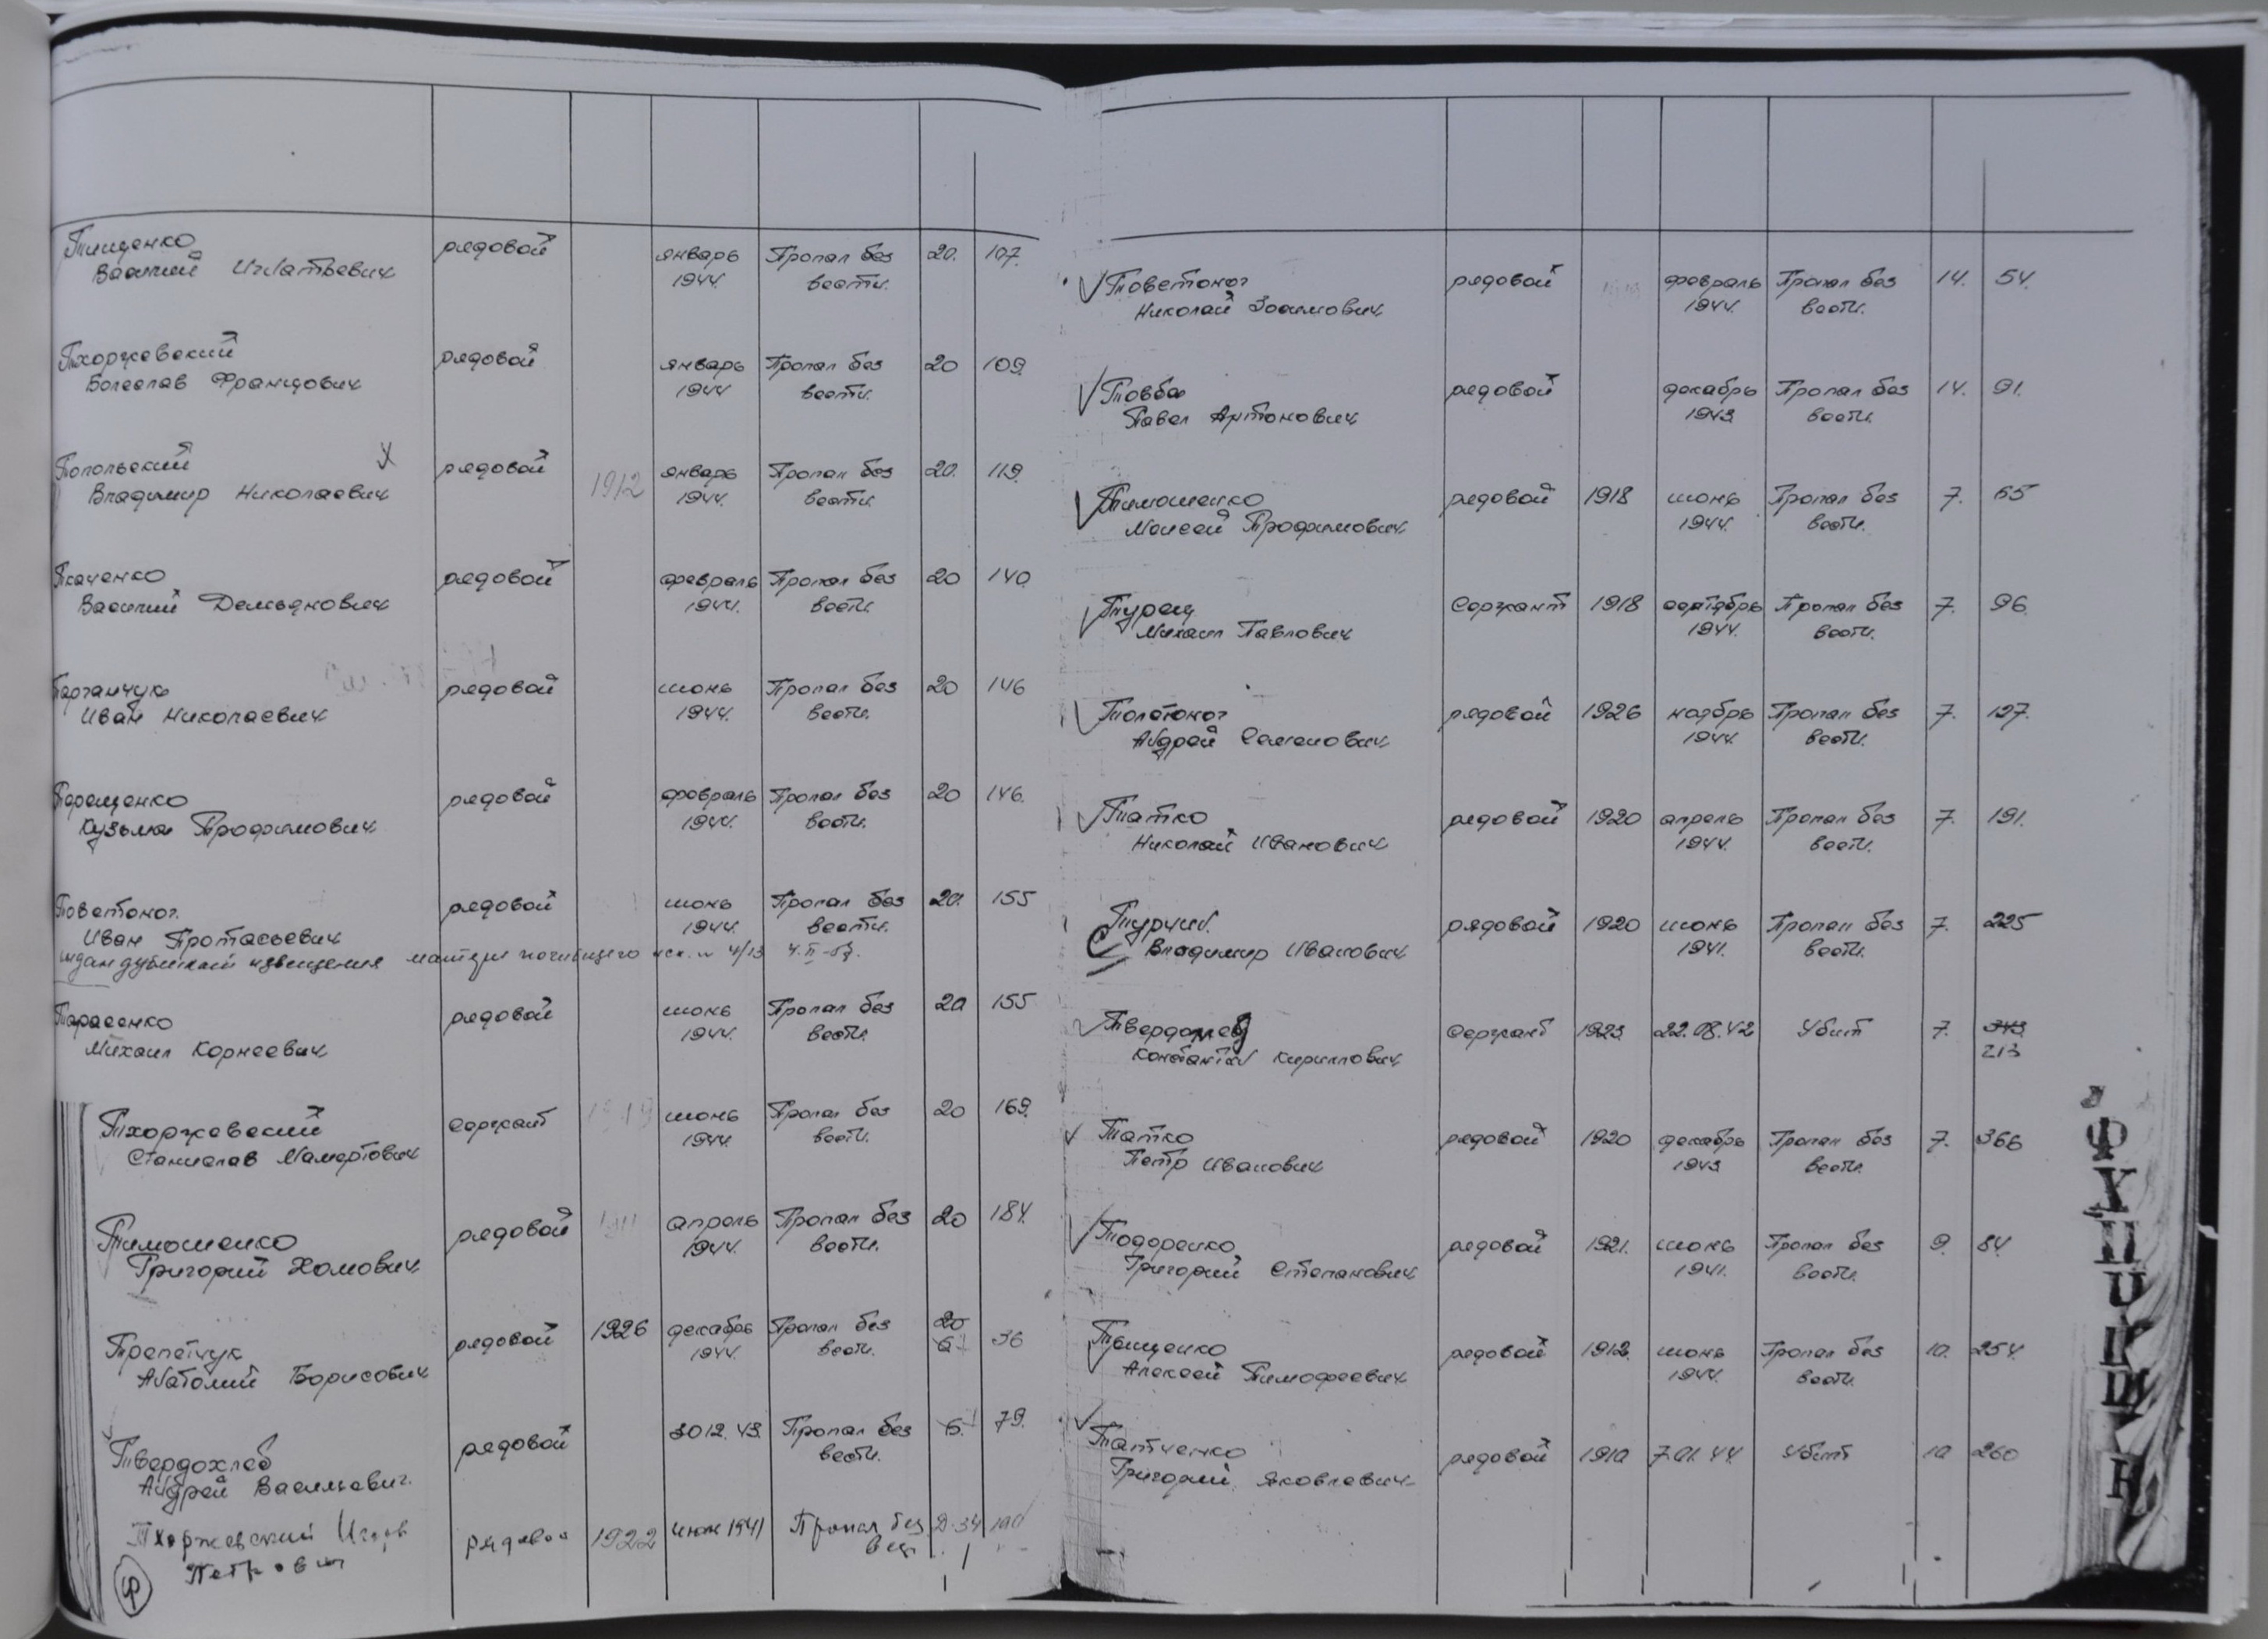 Тищенко рядовой январь Пропал без 20. 107.
Василий Игнатьевич 1944. вести.
Тхоржевский рядовой январь Пропал без 20 109.
Болеслав Францович 1944 вести.
Топольский X рядовой 1912 январь Пропал без 20. 119.
Владимир Николаевич 1944. вести.
Ткаченко рядовой февраль Пропал без 20 140.
Василий Демьянович 1944. вести.
рядовой июнь Пропал без 20 146
Иван Николаевич 1944. вести.
Терещенко рядовой февраль Пропал без 20 146.
Кузьма Трофимович 1944. вести.
Товстоног. рядовой июнь Пропал без 20. 155
Иван Протасьевич 1944. вести.
извещения матери погибшего исх. № 4/13
Тарасенко рядовой июнь Пропал без 20 155
Михаил Корнеевич 1944. вести.
Тхоржевский сержант 1919 июнь Пропал без 20 169.
Станислав Мамертович 1944. вести.
Тимошенко рядовой 1911 апрель Пропал без 20 184.
Григорий Хомович 1944. вести.
Трепетчук рядовой 1926 декабрь Пропал без 20 36
Анатолий Борисович 1944. вести.
Твердохлеб рядовой 30 12. 43. Пропал без 79.
Андрей Васильевич. вести.
Тхоржевский рядовой 1922 июнь 1941 Пропал без
Петрович
Ф
Товстоног рядовой февраль Пропал без 14. 54.
Николай Зосимович 1944. вести.
Товба рядовой декабрь Пропал без 14. 91.
Павел Антонович 1943 вести.
Тимошенко рядовой 1918 июнь Пропал без 7. 65
Моисей Трофимович 1944. вести.
Турец сержант 1918 сентябрь Пропал без 7. 96.
Михаил Павлович 1944. вести.
Толстоног рядовой 1926 ноябрь Пропал без 7. 127.
Андрей Семенович 1944. вести.
Татко рядовой 1920 апрель Пропал без 7. 191.
Николай Иванович 1944. вести.
Турчин. рядовой 1920 июнь Пропал без 7. 225
Владимир Иванович 1941. вести.
сержант 1923. 22.08.42 Убит 7. 343
Константин Кириллович 213
Татко рядовой 1920 декабрь Пропал без 7. 366
Петр Иванович 1943 вести.
Тодоренко рядовой 1921. июнь Пропал без 9. 84.
Григорий Степанович 1941. вести.
Тищенко рядовой 1912. июнь Пропал без 10. 254.
Алексей Тимофеевич 1944. вести.
Татченко рядовой 1910 7.01.44 Убит 10 260
Григорий Яковлевич
Ф
Х